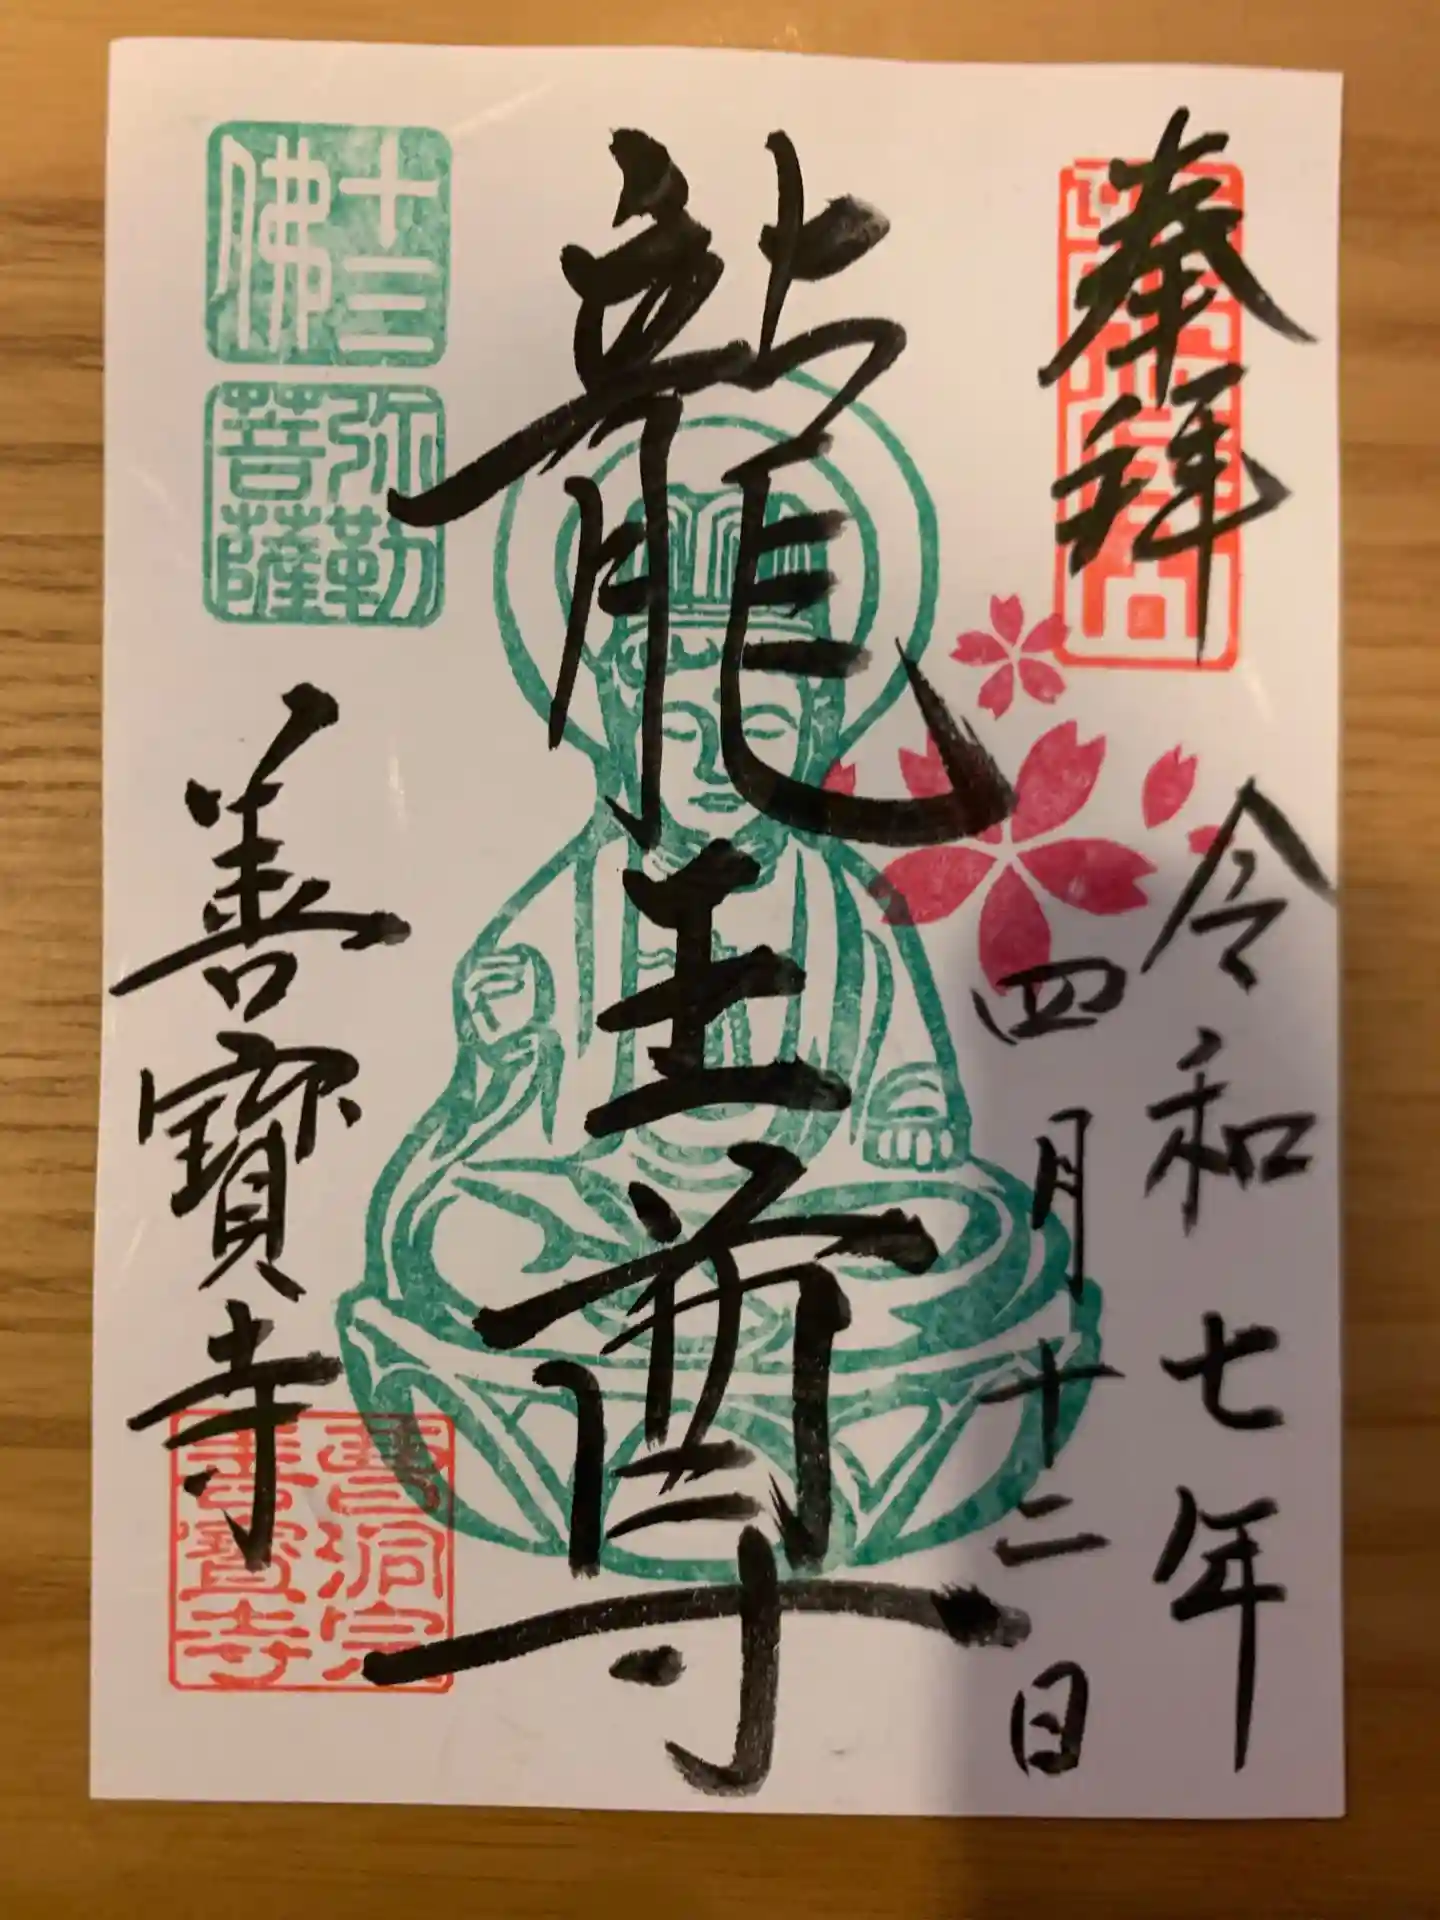 奉拜
令和七年
四月十二日
龍王尊
十三
佛
弥勒
菩薩
善寳寺
曹洞宗
善寳寺